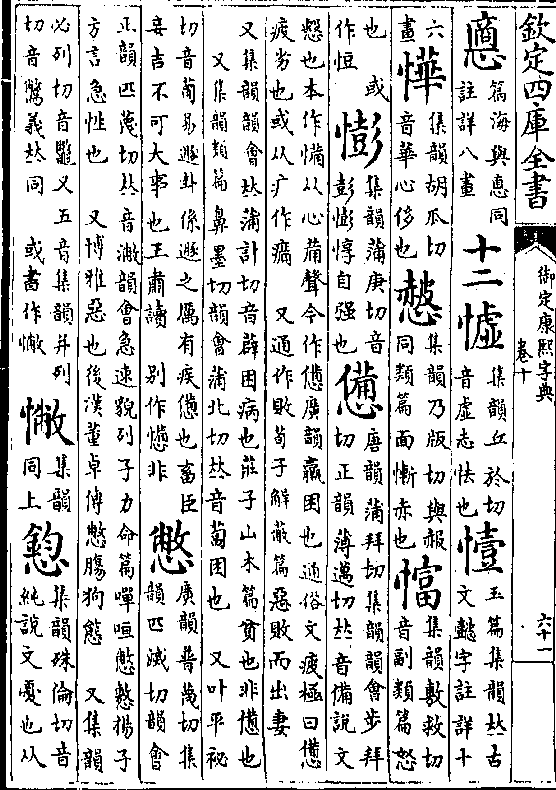 欽定四庫全書
御定康熙字典
卷十
六十一
篇海與惪同註詳八畫 十二 憈 集韻丘於切音虛志怯也 玉篇集韻𠀤古文懿字註詳十
六畫 集韻胡瓜切音華心侈也 集韻乃版切與赧同類篇面慚赤也 集韻敷救切音副類篇怒
也 或作恒 憉 集韻蒲庚切音彭憉悙自强也 憊 唐韻蒲拜切集韻韻會步拜切正韻薄邁切𠀤音備說文
也本作㣁从心𤰈聲今作憊廣韻羸困也通俗文疲極曰憊疲劣也或从疒作 又通作敗荀子解蔽篇惡敗而出妻
又集韻韻會𠀤蒲計切音薜困病也莊子山木篇貧也非憊也 又集韻類篇鼻墨切韻會蒲北切𠀤音匐困也 又叶平祕
切音葡易遯卦係遯之厲有疾憊也畜臣妾吉不可大事也王肅讀 別作 非 憋 廣韻普蔑切集韻匹滅切韻會
正韻匹蔑切𠀤音潎韻會急速貌列子力命篇嘽咺憋憗揚子方言急性也 又博雅惡也後漢董卓傳憋腸狗態 又集韻
必列切音鷩又五音集韻幷列切音鷩義𠀤同 或書作㡀 集韻同上 集韻殊倫切音純說文憂也从